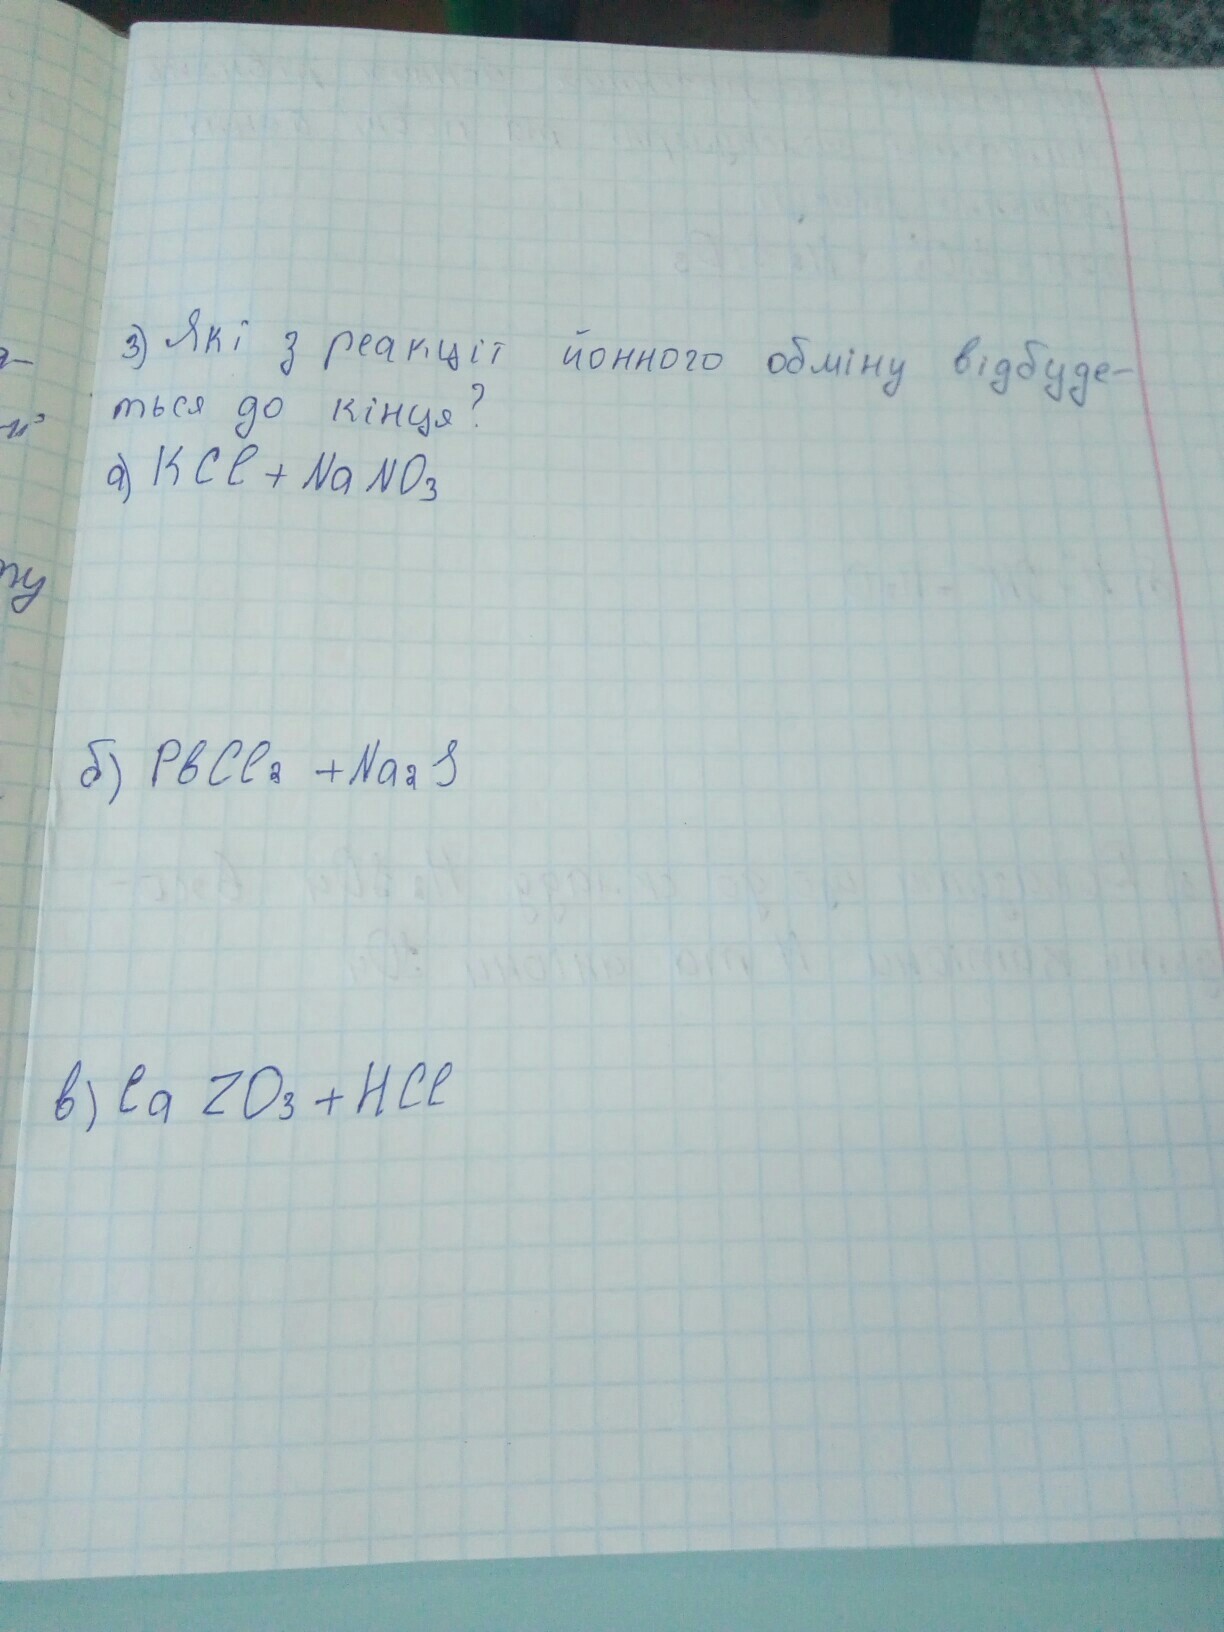 3) Які з реакції йонного обміну відбуде-
ться до кінця?
а) KCl + NaNO3
б) PbCl2 + Na2S
в) Ca ZO3 + HCl